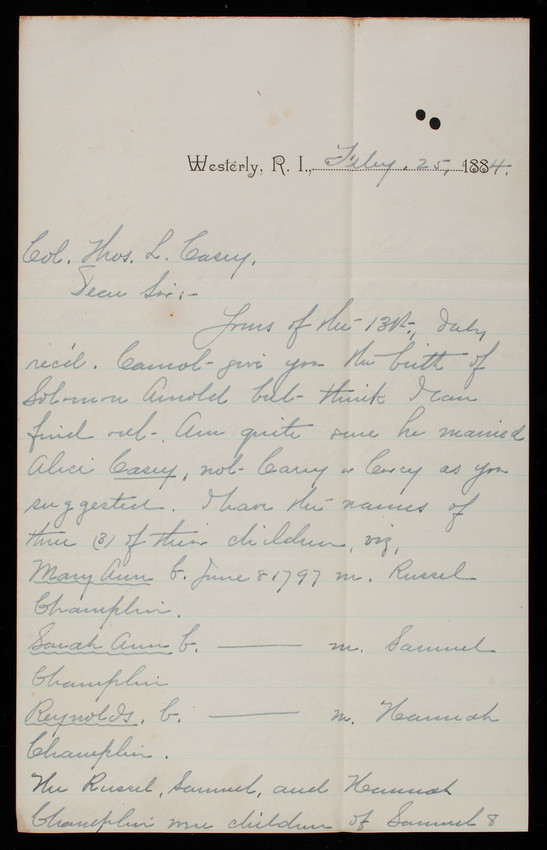 Westerly, R. I., Feby. 25, 1884.
Col. Thos. L. Casey,
Dear Sir;-
Yours of the 13th, duly
rec'd. Cannot give you the birth of
Solomon Arnold but think I can
find out. Am quite sure he married
Alice Casey, not Carey or Cacey as you
suggested. I have the names of
three (3) of their children, viz,
Mary Ann b. June 8 1797 m. Russel
Champlin.
Sarah Ann b. —— m. Samuel
Champlin
Reynolds. b. —— m. Hannah
Champlin.
The Russel, Samuel, and Hannah
Champlin were children of Samuel &